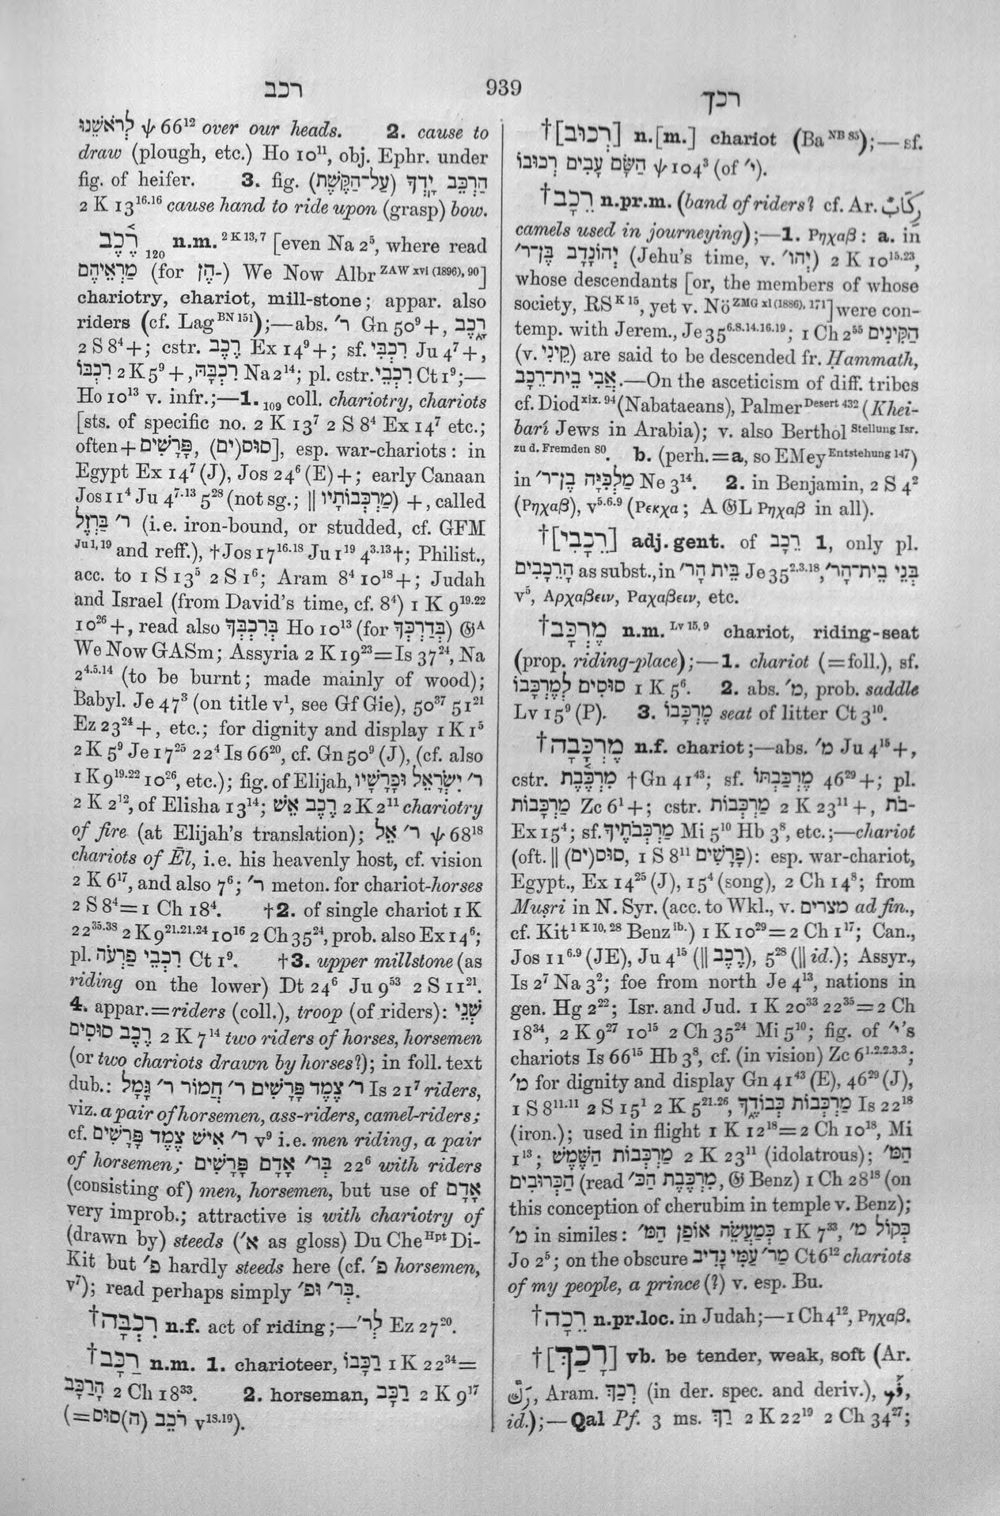 רכב
939
רכך
לְראֹשֵׁנוּ ψ 66¹² over our heads. 2. cause to
draw (plough, etc.) Ho 10¹¹, obj. Ephr. under
fig. of heifer. 3. fig. הַרְכֵּב יָדְךָ (עַל־הַקֶּשֶׁת)
2 K 13¹⁶·¹⁶ cause hand to ride upon (grasp) bow.
רֶ֫כֶב 120 n.m. 2 K 13, 7 [even Na 2⁵, where read
מַרְאֵיהֶם (for הֶן-) We Now Albr ZAW xvi (1896), 90]
chariotry, chariot, mill-stone; appar. also
riders (cf. Lag BN 151);—abs. ר׳ Gn 50⁹+, רָ֑כֶב
2 S 8⁴+; cstr. רֶכֶב Ex 14⁹+; sf. רִכְבִּי Ju 4⁷+,
רִכְבּוֹ 2 K 5⁹+, רִכְבָּהּ Na 2¹⁴; pl. cstr. רִכְבֵי Ct 1⁹;—
Ho 10¹³ v. infr.;—1. 109 coll. chariotry, chariots
[sts. of specific no. 2 K 13⁷ 2 S 8⁴ Ex 14⁷ etc.;
often + פָּרָשִׁים, סוּס(ים)], esp. war-chariots: in
Egypt Ex 14⁷ (J), Jos 24⁶ (E)+; early Canaan
Jos 11⁴ Ju 4⁷·¹³ 5²⁸ (not sg.; ‖ מַרְכְּבוֹתָיו)+, called
ר׳ בַּרְזֶל (i.e. iron-bound, or studded, cf. GFM
Ju 1, 19 and reff.), †Jos 17¹⁶·¹⁸ Ju 1¹⁹ 4³·¹³†; Philist.,
acc. to 1 S 13⁵ 2 S 1⁶; Aram 8⁴ 10¹⁸+; Judah
and Israel (from David's time, cf. 8⁴) 1 K 9¹⁹·²²
10²⁶+, read also בְּרִכְבְּךָ Ho 10¹³ (for בְּדַרְכְּךָ) 𝔊ᴬ
We Now GASm; Assyria 2 K 19²³=Is 37²⁴, Na
2⁴·⁵·¹⁴ (to be burnt; made mainly of wood);
Babyl. Je 47³ (on title v¹, see Gf Gie), 50³⁷ 51²¹
Ez 23²⁴+, etc.; for dignity and display 1 K 1⁵
2 K 5⁹ Je 17²⁵ 22⁴ Is 66²⁰, cf. Gn 50⁹ (J), (cf. also
1 K 9¹⁹·²² 10²⁶, etc.); fig. of Elijah, ר׳ יִשְׂרָאֵל וּפָרָשָׁיו
2 K 2¹², of Elisha 13¹⁴; רֶכֶב אֵשׁ 2 K 2¹¹ chariotry
of fire (at Elijah's translation); ר׳ אֵל ψ 68¹⁸
chariots of Ēl, i.e. his heavenly host, cf. vision
2 K 6¹⁷, and also 7⁶; ר׳ meton. for chariot-horses
2 S 8⁴=1 Ch 18⁴. †2. of single chariot 1 K
22³⁵·³⁸ 2 K 9²¹·²¹·²⁴ 10¹⁶ 2 Ch 35²⁴, prob. also Ex 14⁶;
pl. רִכְבֵי פַרְעֹה Ct 1⁹. †3. upper millstone (as
riding on the lower) Dt 24⁶ Ju 9⁵³ 2 S 11²¹.
4. appar.=riders (coll.), troop (of riders): שְׁנֵי
רֶכֶב סוּסִים 2 K 7¹⁴ two riders of horses, horsemen
(or two chariots drawn by horses?); in foll. text
dub.: ר׳ צֶמֶד פָּרָשִׁים ר׳ חֲמוֹר ר׳ גָּמָל Is 21⁷ riders,
viz. a pair of horsemen, ass-riders, camel-riders;
cf. ר׳ אִישׁ צֶמֶד פָּרָשִׁים v⁹ i.e. men riding, a pair
of horsemen; בְּר׳ אָדָם פָּרָשִׁים 22⁶ with riders
(consisting of) men, horsemen, but use of אָדָם
very improb.; attractive is with chariotry of
(drawn by) steeds (א׳ as gloss) Du Che Hpt Di-
Kit but פ׳ hardly steeds here (cf. פ׳ horsemen,
v⁷); read perhaps simply בְּר׳ וּפ׳.
†רִכְבָּה n.f. act of riding;—לְר׳ Ez 27²⁰.
†רַכָּב n.m. 1. charioteer, רַכָּבוֹ 1 K 22³⁴=
הָרַכָּב 2 Ch 18³³. 2. horseman, רַכָּב 2 K 9¹⁷
(=רֹכֵב (ה)סוּס v¹⁸·¹⁹).
†[רְכוּב] n.[m.] chariot (Ba NB 85);—sf.
הַשָּׂם עָבִים רְכוּבוֹ ψ 104³ (of י׳).
†רֵכָב n.pr.m. (band of riders? cf. Ar. رِكَاب
camels used in journeying);—1. Ρηχαβ: a. in
יְהוֹנָדָב בֶּן־ר׳ (Jehu's time, v. יְהוֹ׳) 2 K 10¹⁵·²³,
whose descendants [or, the members of whose
society, RS K 15, yet v. Nö ZMG xl (1886), 171] were con-
temp. with Jerem., Je 35⁶·⁸·¹⁴·¹⁶·¹⁹; 1 Ch 2⁵⁵ הַקִּינִים
(v. קֵינִי) are said to be descended fr. Ḥammath,
אֲבִי בֵית־רֵכָב.—On the asceticism of diff. tribes
cf. Diod xix. 94 (Nabataeans), Palmer Desert 432 (Khei-
barî Jews in Arabia); v. also Berthol Stellung Isr.
zu d. Fremden 80. b. (perh.=a, so EMey Entstehung 147)
in מַלְכִּיָּה בֶן־ר׳ Ne 3¹⁴. 2. in Benjamin, 2 S 4²
(Ρηχαβ), v⁵·⁶·⁹ (Ρεκχα; A 𝔊L Ρηχαβ in all).
†[רֵכָבִי] adj.gent. of רֵכָב 1, only pl.
הָרֵכָבִים as subst., in בֵּית הָר׳ Je 35²·³·¹⁸, בְּנֵי בֵית־הָר׳
v⁵, Αρχαβειν, Ραχαβειν, etc.
†מֶרְכָּב n.m. Lv 15, 9 chariot, riding-seat
(prop. riding-place);—1. chariot (=foll.), sf.
סוּסִים לְמֶרְכָּבוֹ 1 K 5⁶. 2. abs. מ׳, prob. saddle
Lv 15⁹ (P). 3. מֶרְכָּבוֹ seat of litter Ct 3¹⁰.
†מֶרְכָּבָה n.f. chariot;—abs. מ׳ Ju 4¹⁵+,
cstr. מִרְכֶּ֫בֶת †Gn 41⁴³; sf. מֶרְכַּבְתּוֹ 46²⁹+; pl.
מַרְכָּבוֹת Zc 6¹+; cstr. מַרְכְּבוֹת 2 K 23¹¹+, בֹת-
Ex 15⁴; sf. מַרְכְּבֹתֶיךָ Mi 5¹⁰ Hb 3⁸, etc.;—chariot
(oft. ‖ סוּס(ים), 1 S 8¹¹ פָּרָשִׁים): esp. war-chariot,
Egypt., Ex 14²⁵ (J), 15⁴ (song), 2 Ch 14⁸; from
Muṣri in N. Syr. (acc. to Wkl., v. מצרים ad fin.,
cf. Kit 1 K 10, 28 Benz ib.) 1 K 10²⁹=2 Ch 1¹⁷; Can.,
Jos 11⁶·⁹ (JE), Ju 4¹⁵ (‖ רֶכֶב), 5²⁸ (‖ id.); Assyr.,
Is 2⁷ Na 3²; foe from north Je 4¹³, nations in
gen. Hg 2²²; Isr. and Jud. 1 K 20³³ 22³⁵=2 Ch
18³⁴, 2 K 9²⁷ 10¹⁵ 2 Ch 35²⁴ Mi 5¹⁰; fig. of י׳'s
chariots Is 66¹⁵ Hb 3⁸, cf. (in vision) Zc 6¹·²·²·³·³;
מ׳ for dignity and display Gn 41⁴³ (E), 46²⁹ (J),
1 S 8¹¹·¹¹ 2 S 15¹ 2 K 5²¹·²⁶, מַרְכְּבוֹת כְּבוֹדֶךָ Is 22¹⁸
(iron.); used in flight 1 K 12¹⁸=2 Ch 10¹⁸, Mi
1¹³; מַרְכְּבוֹת הַשֶּׁמֶשׁ 2 K 23¹¹ (idolatrous); הַמּ׳
הַכְּרוּבִים (read מִרְכֶּבֶת הַכ׳, 𝔊 Benz) 1 Ch 28¹⁸ (on
this conception of cherubim in temple v. Benz);
מ׳ in similes: כְּמַעֲשֵׂה אוֹפַן הַמּ׳ 1 K 7³³, כְּקוֹל מ׳
Jo 2⁵; on the obscure מַר׳ עַמִּי־נָדִיב Ct 6¹² chariots
of my people, a prince (?) v. esp. Bu.
†רֵכָה n.pr.loc. in Judah;—1 Ch 4¹², Ρηχαβ.
†[רָכַךְ] vb. be tender, weak, soft (Ar.
رَكَّ, Aram. רְכַךְ (in der. spec. and deriv.), ܪܰܟ,
id.);—Qal Pf. 3 ms. רַךְ 2 K 22¹⁹ 2 Ch 34²⁷;